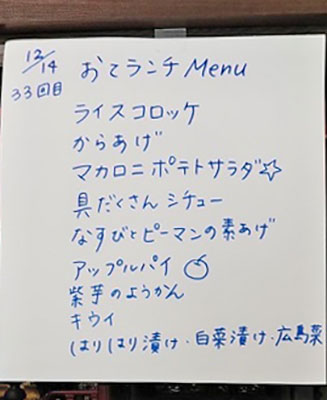 12/14 おてランチ Menu
33回目
ライスコロッケ
からあげ
マカロニ ポテトサラダ☆
具だくさん シチュー
なすびとピーマンの素あげ
アップルパイ
紫芋のようかん
キウイ
はりはり漬け・白菜漬け・広島菜